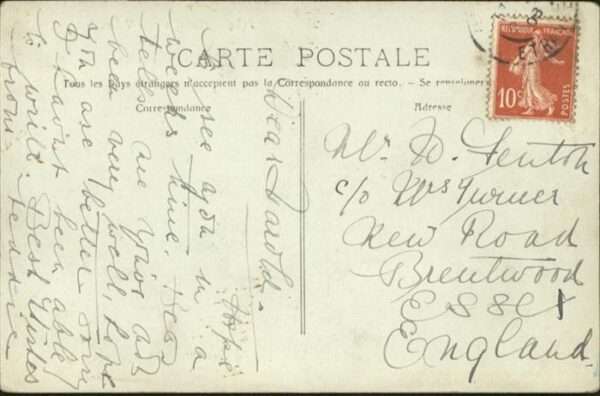 CARTE POSTALE
Tous les pays étrangers n'acceptent pas la Correspondance au recto. - Se renseigner
Correspondance
Adresse
REPUBLIQUE FRANÇAISE
10c
POSTES
Dear Harold -
Hope
to see you in a
weeks time.
are
been very well, hope
you are better sorry
I havint been able
to write. Best Wishes
from Teddie
Mr H. Fenton
c/o Mrs Turner
New Road
Brentwood
Essex
England.